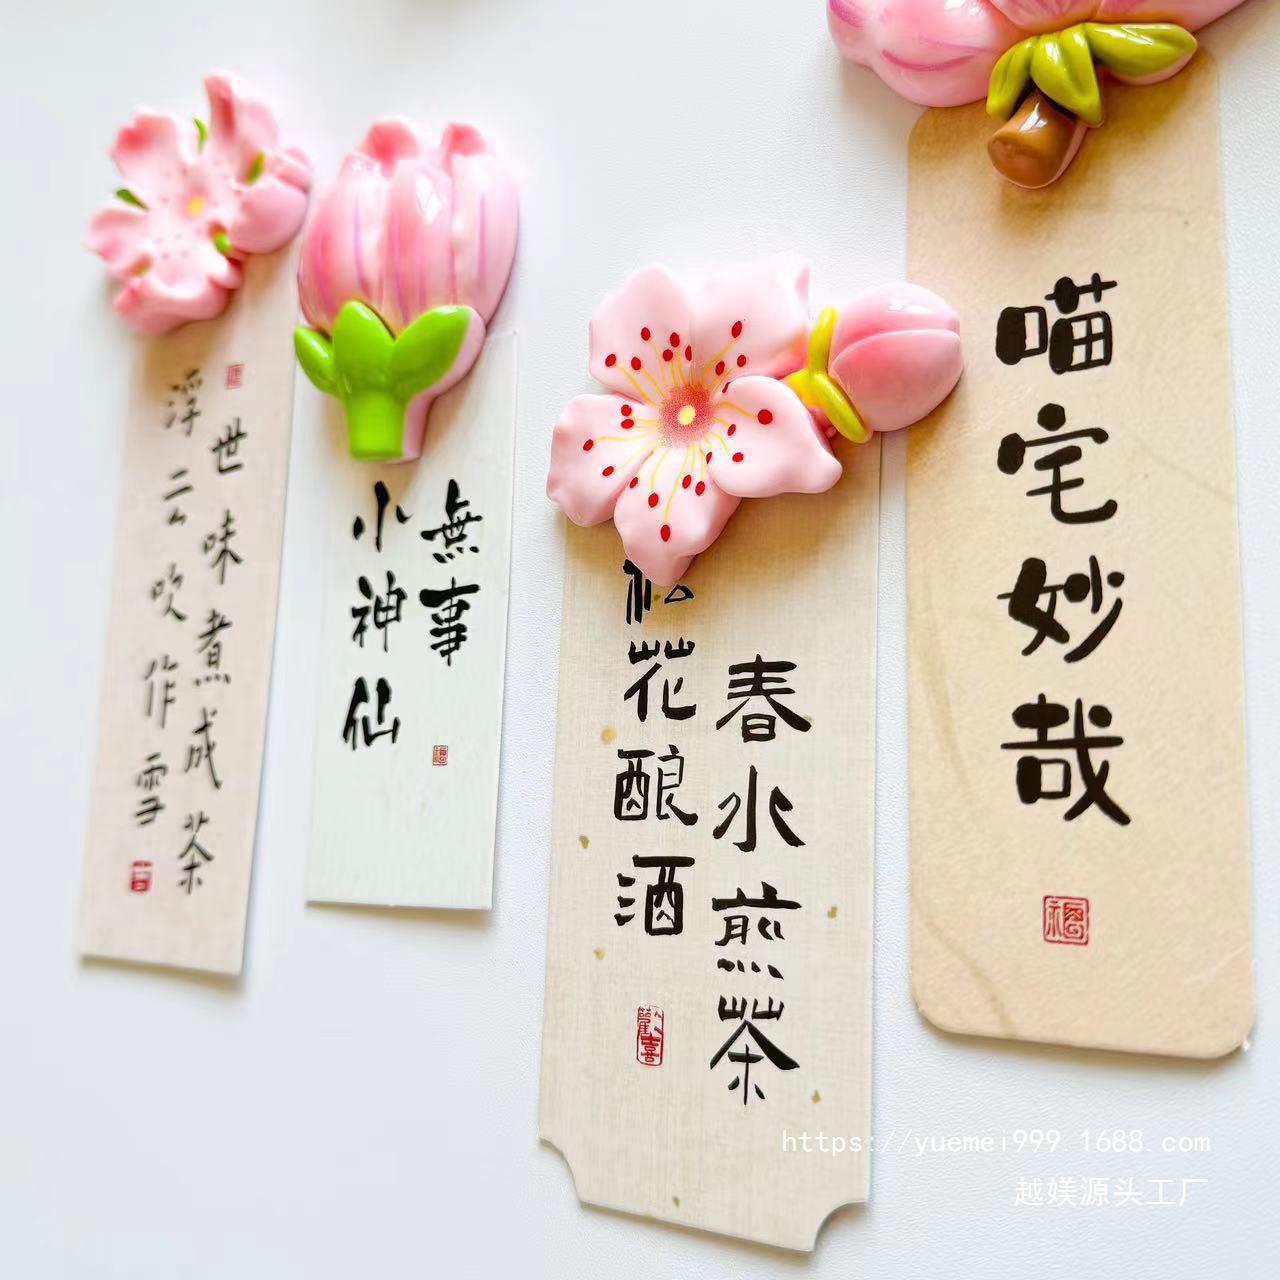 浮云吹作雪
世味煮成茶
無事
小神仙
松花酿酒
春水煎茶
喵宅妙哉
福
https://yuemei999.1688.com
越媄源头工厂